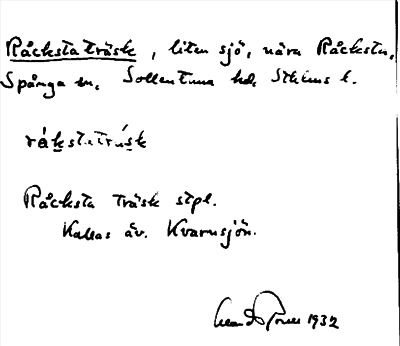 Råcksta träsk, liten sjö, nära Råcksta,
Spånga sn, Sollentuna hd, Sthlms l.
råkstaträsk
Råcksta träsk stpl.
Kallas äv. Kvarnsjön.
1932